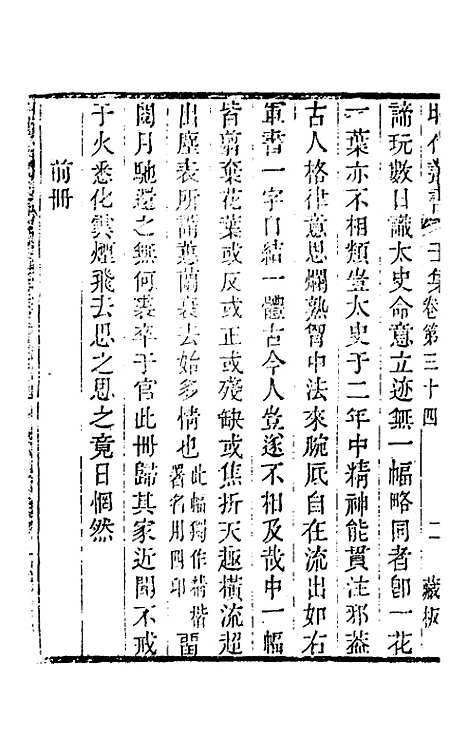 昭代叢書 壬集卷第三十四 二 藏板
諦玩數日識太史命意立迹無一幅略同者卽一花
一葉亦不相類豈太史于二年中精神能貫注邪葢
古人格律意思爛熟智中法來腕底自在流出如右
軍書一字口結一體古今人豈遂不相及哉中一幅
皆翦棄花葉或反或正或殘缺或焦折天趣橫流超
出塵表所謂蕙蘭衰去始多情也此幅獨作楷楷著名用四印 閏
閱月馳還之無何裘卒于官此冊歸其家近聞不戒
于火悉化雲煙飛去思之思之竟日惘然
前冊